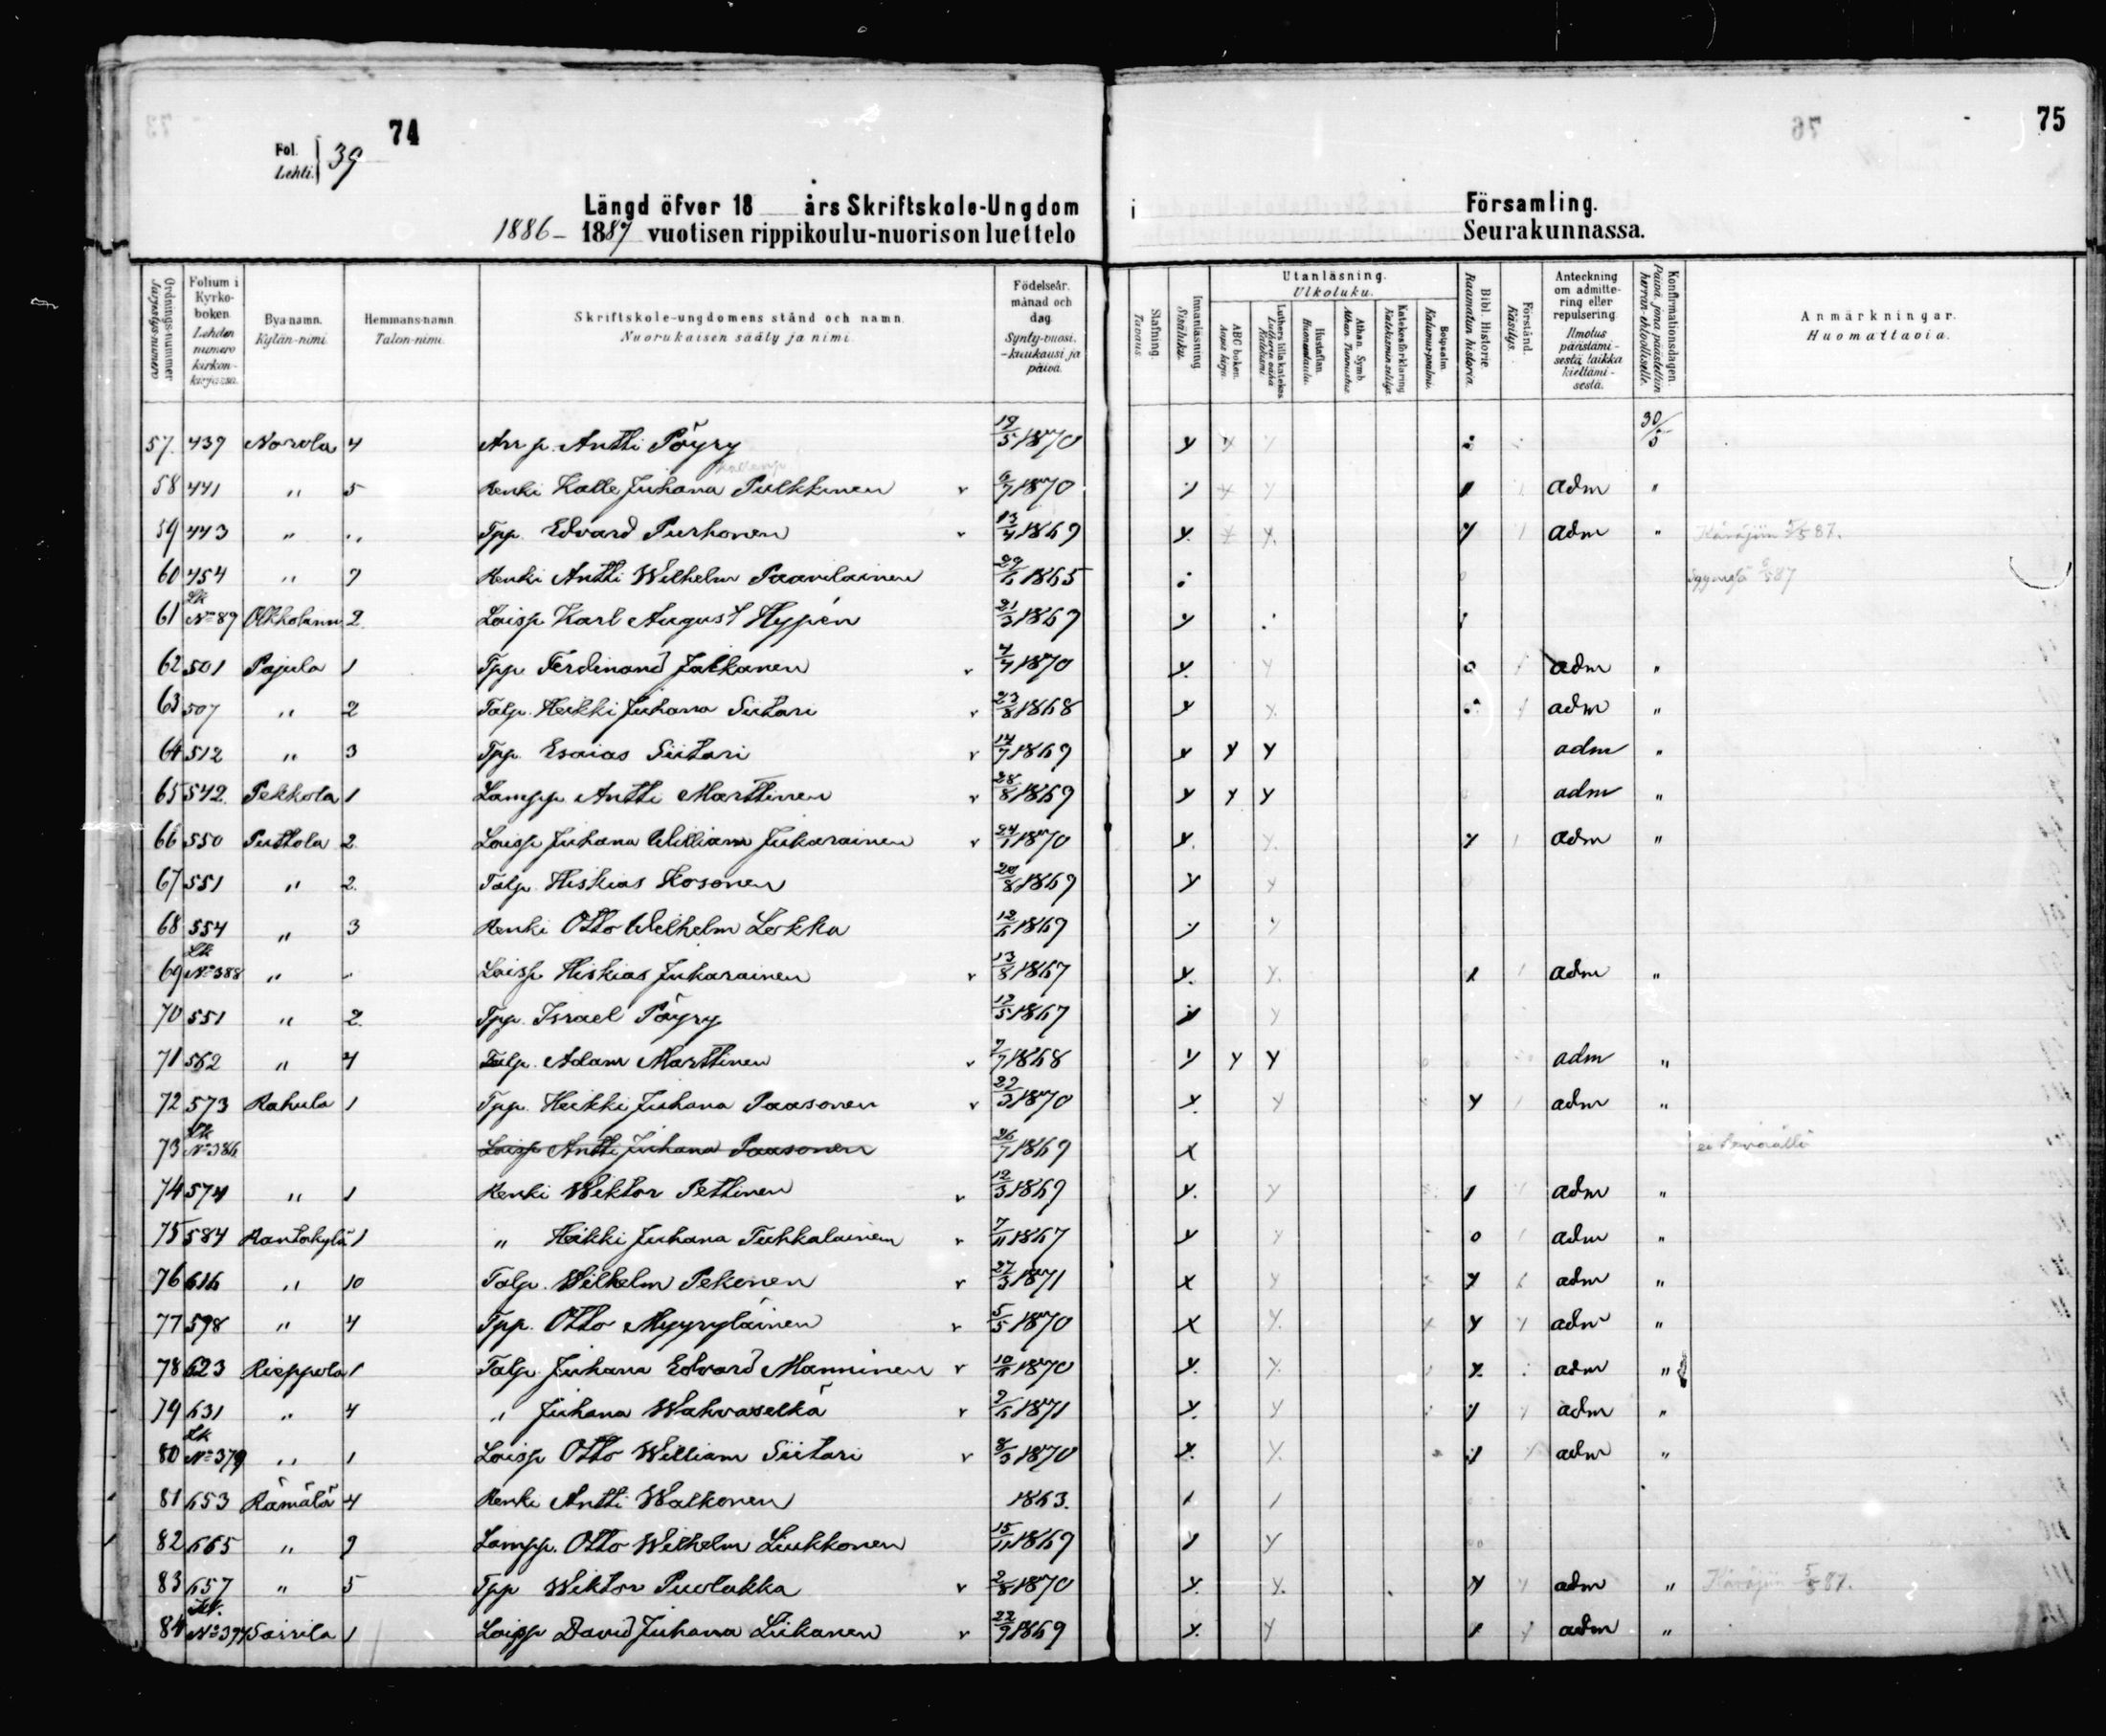 74
75
Fol.
Lehti. 39
Längd öfver 18 års Skriftskole-Ungdom i Församling.
1886- 1887 vuotisen rippikoulu-nuorison luettelo Seurakunnassa.
Ordnings-nummer Järjestys-numero
Folium i Kyrko-boken. Lehden numero kirkon-kirjassa.
Bya namn. Kylän-nimi.
Hemmans-namn. Talon-nimi.
Skriftskole-ungdomens stånd och namn. Nuorukaisen sääty ja nimi.
Födelseår. månad och dag. Synty-vuosi, -kuukausi ja päivä.
Stafning. Tavaus.
Innanläsning Sisäluku.
Utanläsning. Ulkoluku.
ABC boken.
Luthers lilla katekes
Hustaflan. Huoneentaulu.
Athan. Symb. Athan. Tunnustus
Katekesförklaring
Botpsalm. Katumus-psalmi.
Bibl. Historie. Raamatun historia.
Förstånd. Käsitys.
Anteckning om admitte-ring eller repulsering. Ilmoitus päästämi-sestä taikka kieltämi-sestä.
Konfirmationsdagen.
Anmärkningar. Huomattavia.
57. 439 Norola 4 Antti Pöyry 5 1870 y 30/5
58 441 " 5 Renki Kalle Juhana Pulkkinen v 7 1870 adm "
59 443 " " Tpp. Edvard Purhonen 13/4 1869 y adm " Käräjiin 5/5 87.
60 454 " 7 Renki Antti Wilhelm Paavilainen 1865
61 Lk No 89 Olkkolanm 2 Loisp. Karl August Hypén 21/3 1869 y
62 501 Pajula 1 Tpp. Ferdinand Jalkanen v 4/7 1870 y adm "
63 507 " 2 Talp. Heikki Juhana Siitari v 23/8 1868 y adm "
64 512 " 3 Tpp. Esaias Siitari v 14/7 1869 y y y adm "
65 542 Pekkola 1 Lampp. Antti Marttinen v 28/8 1869 y y y adm "
66 550 Puttola 2 Loisp. Juhana William Jukarainen v 1870 y adm "
67 551 " 2. Talp. Hiskias Kosonen 20/8 1869 y
68 554 " 3 Renki Otto Wilhelm Lokka 1869 y
69 Lk No 388 " " Loisp. Hiskias Jukarainen v 13/8 1867 y adm "
70 551 " 2. Tpp. Israel Pöyry 12/5 1867 y
71 562 " 4 Talp. Adam Marttinen v 1868 y y y adm "
72 573 Rahula 1 Tpp. Heikki Juhana Paasonen v 22/3 1870 y adm "
73 Lk No 386 Loisp. Antti Juhana Paasonen 26/7 1869 x
74 574 " 1 Renki Wiktor Pettinen v 12/3 1869 y adm "
75 584 Rantakylä 1 " Heikki Juhana Tuhkalainen v 7/11 1867 y adm "
76 616 " 10 Talp. Wilhelm Pekonen v 27/3 1871 x adm "
77 598 " 4 Tpp. Otto Myyryläinen v 5/5 1870 x adm "
78 623 Rieppola 1 Talp. Juhana Edvard Manninen v 1870 y adm "
79 631 " 4 " Juhana Wahvaselkä v 1871 y adm "
80 Lk No 379 " 1 Loisp. Otto William Siitari v 8/3 1870 y adm "
81 653 Rämälä 4 Renki Antti Walkonen 1863.
82 665 " 9 Lampp. Otto Wilhelm Liukkonen 15/11 1869 y
83 657 " 5 Tpp. Wiktor Puolakka v 2/8 1870 y adm " Käräjiin 5/5 87.
84 Lk. No 394 Sairila 1 Loisp. David Juhana Liikanen v 22/9 1869 y adm "